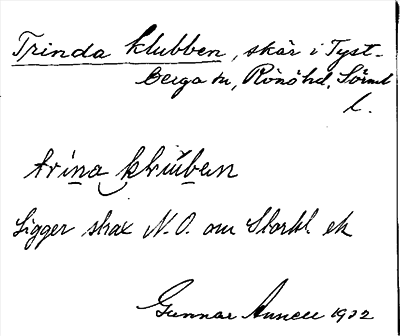 Trinda klubben, skär i Tyst-
berga sn, Rönö hd, Sörml
l.
trina kluben
Ligger strax N.O. om Storkl. ek
Gunnar 1932